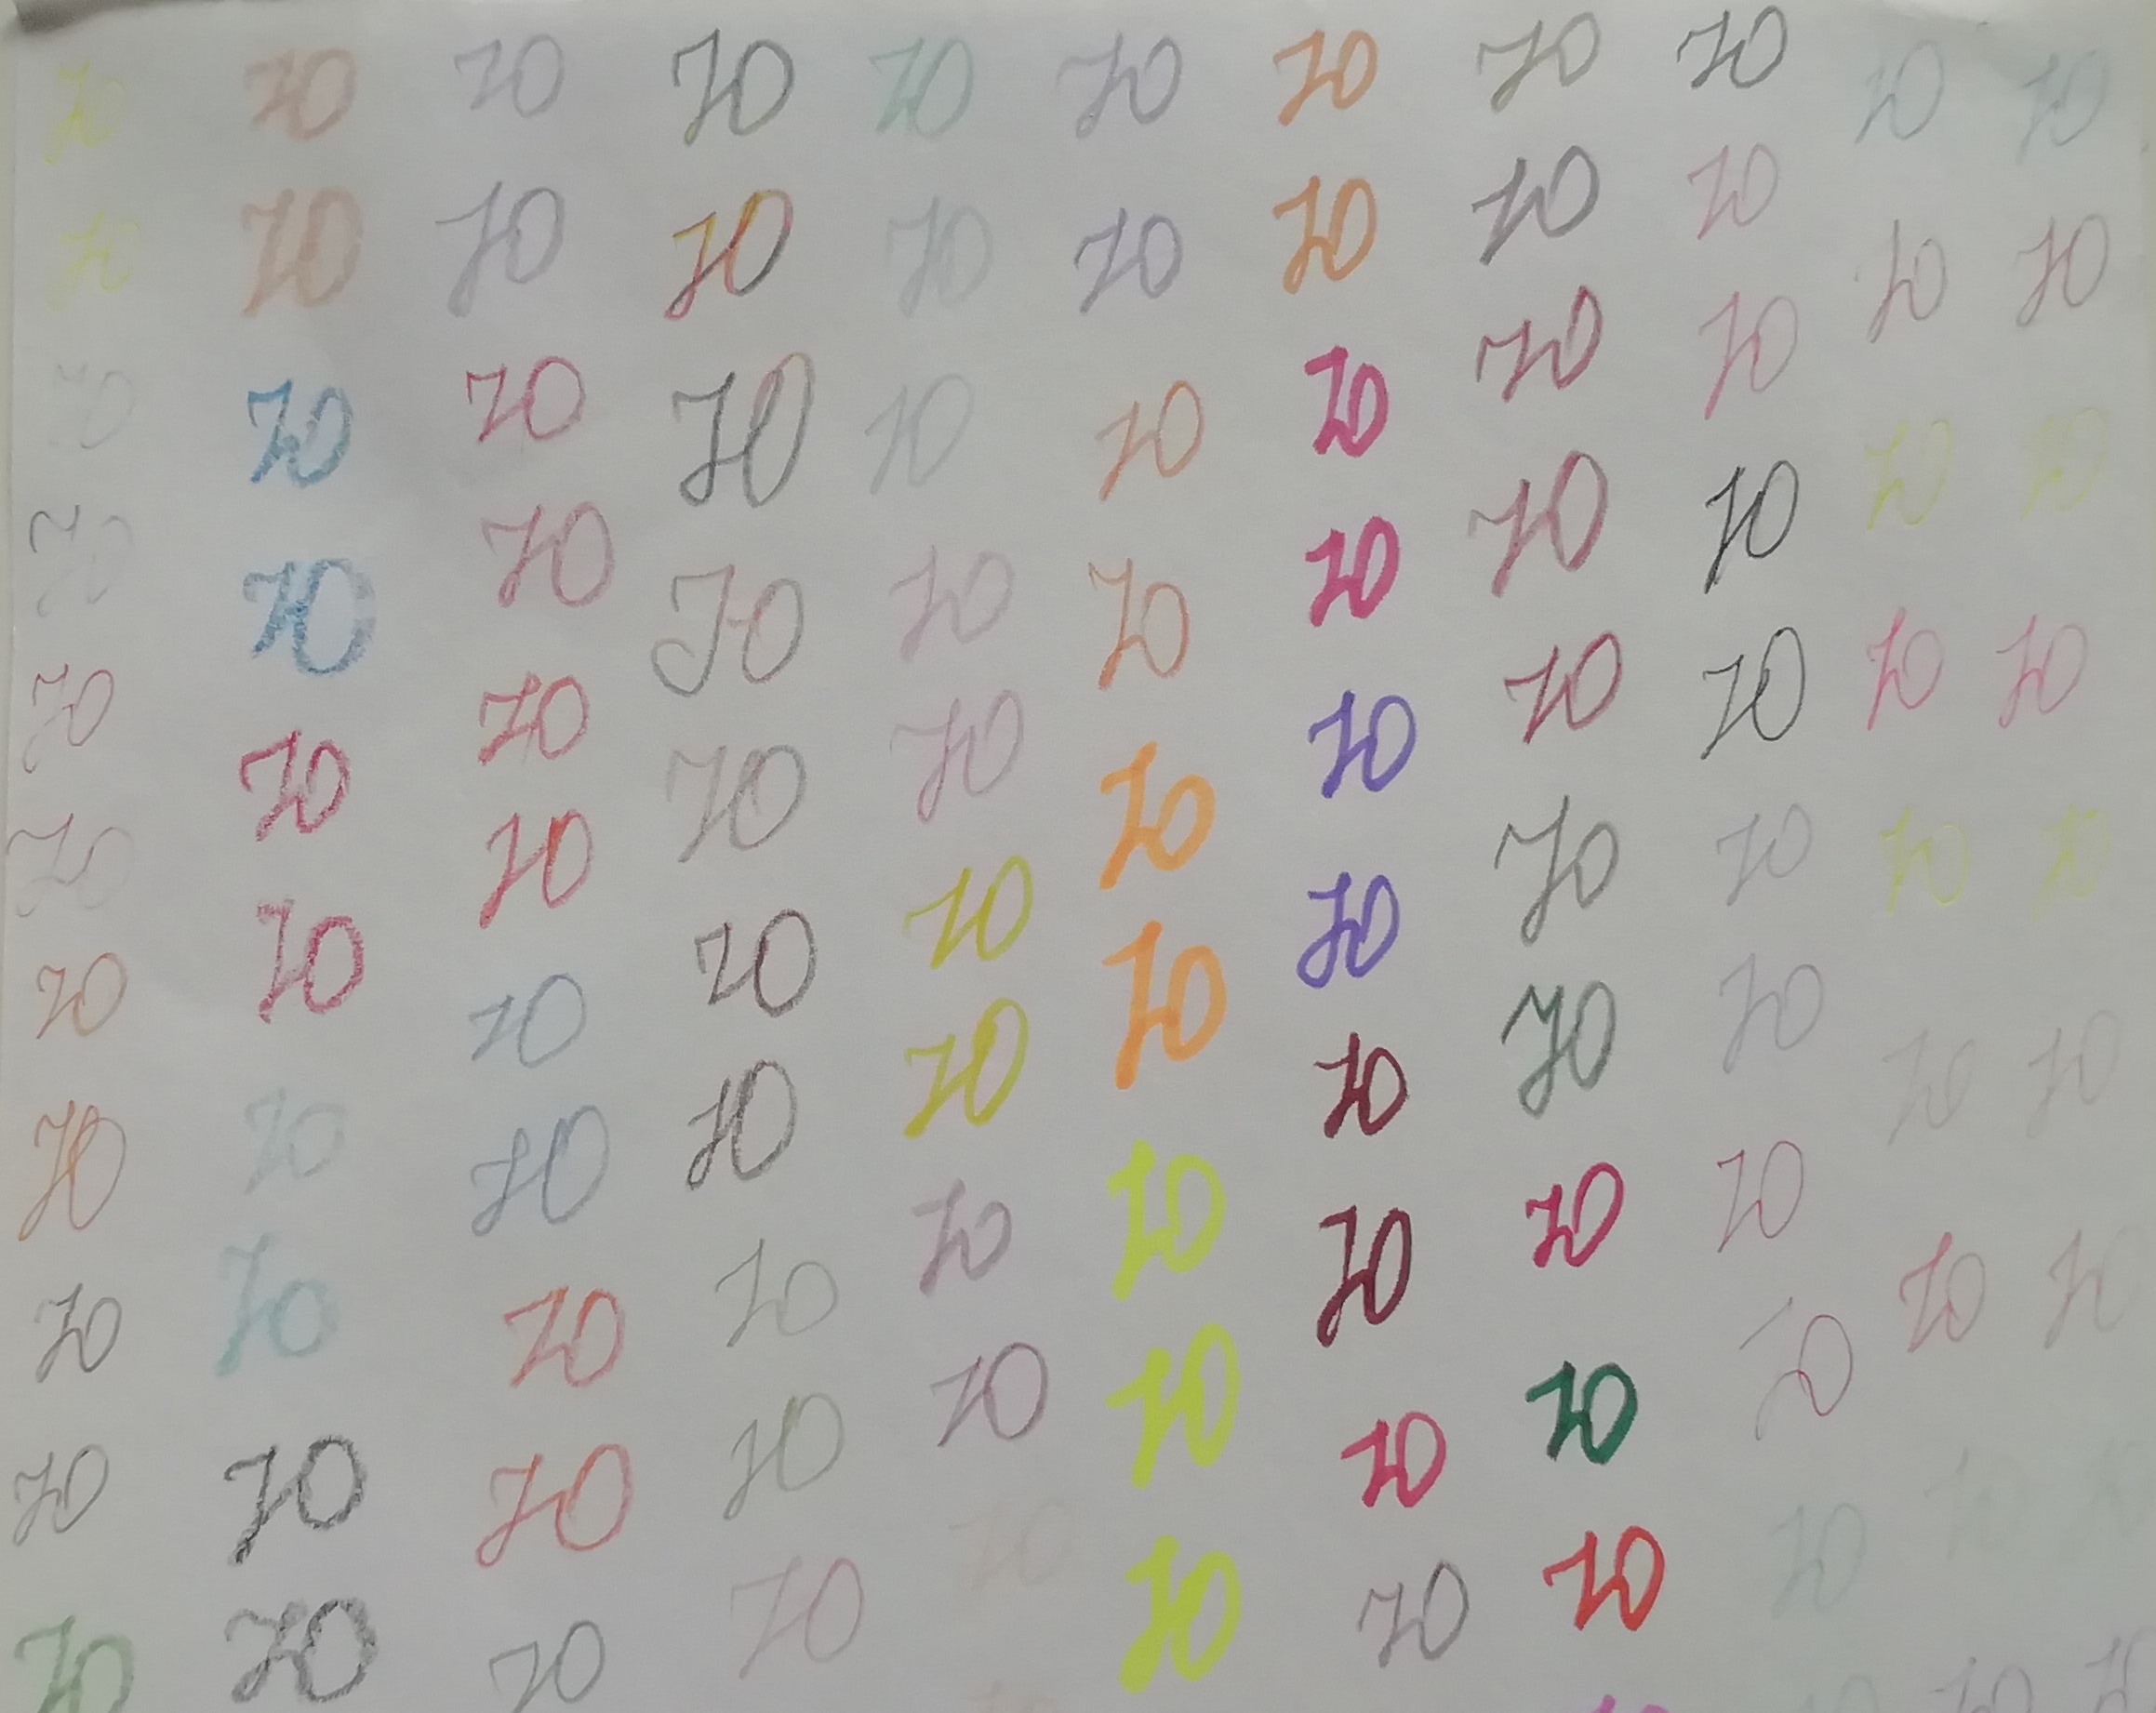 70 70 70 70 70 70 70 70 70 70 70
70 70 70 70 70 70 70 70 70 70 70
70 70 70 70 70 70 70 70 70 70 70
70 70 70 70 70 70 70 70 70 70 70
70 70 70 70 70 70 70 70 70 70 70
70 70 70 70 70 70 70 70 70 70 70
70 70 70 70 70 70 70 70 70 70 70
70 70 70 70 70 70 70 70 70 70 70
70 70 70 70 70 70 70 70 70
70 70 70 70 70 70 70 70
70 70